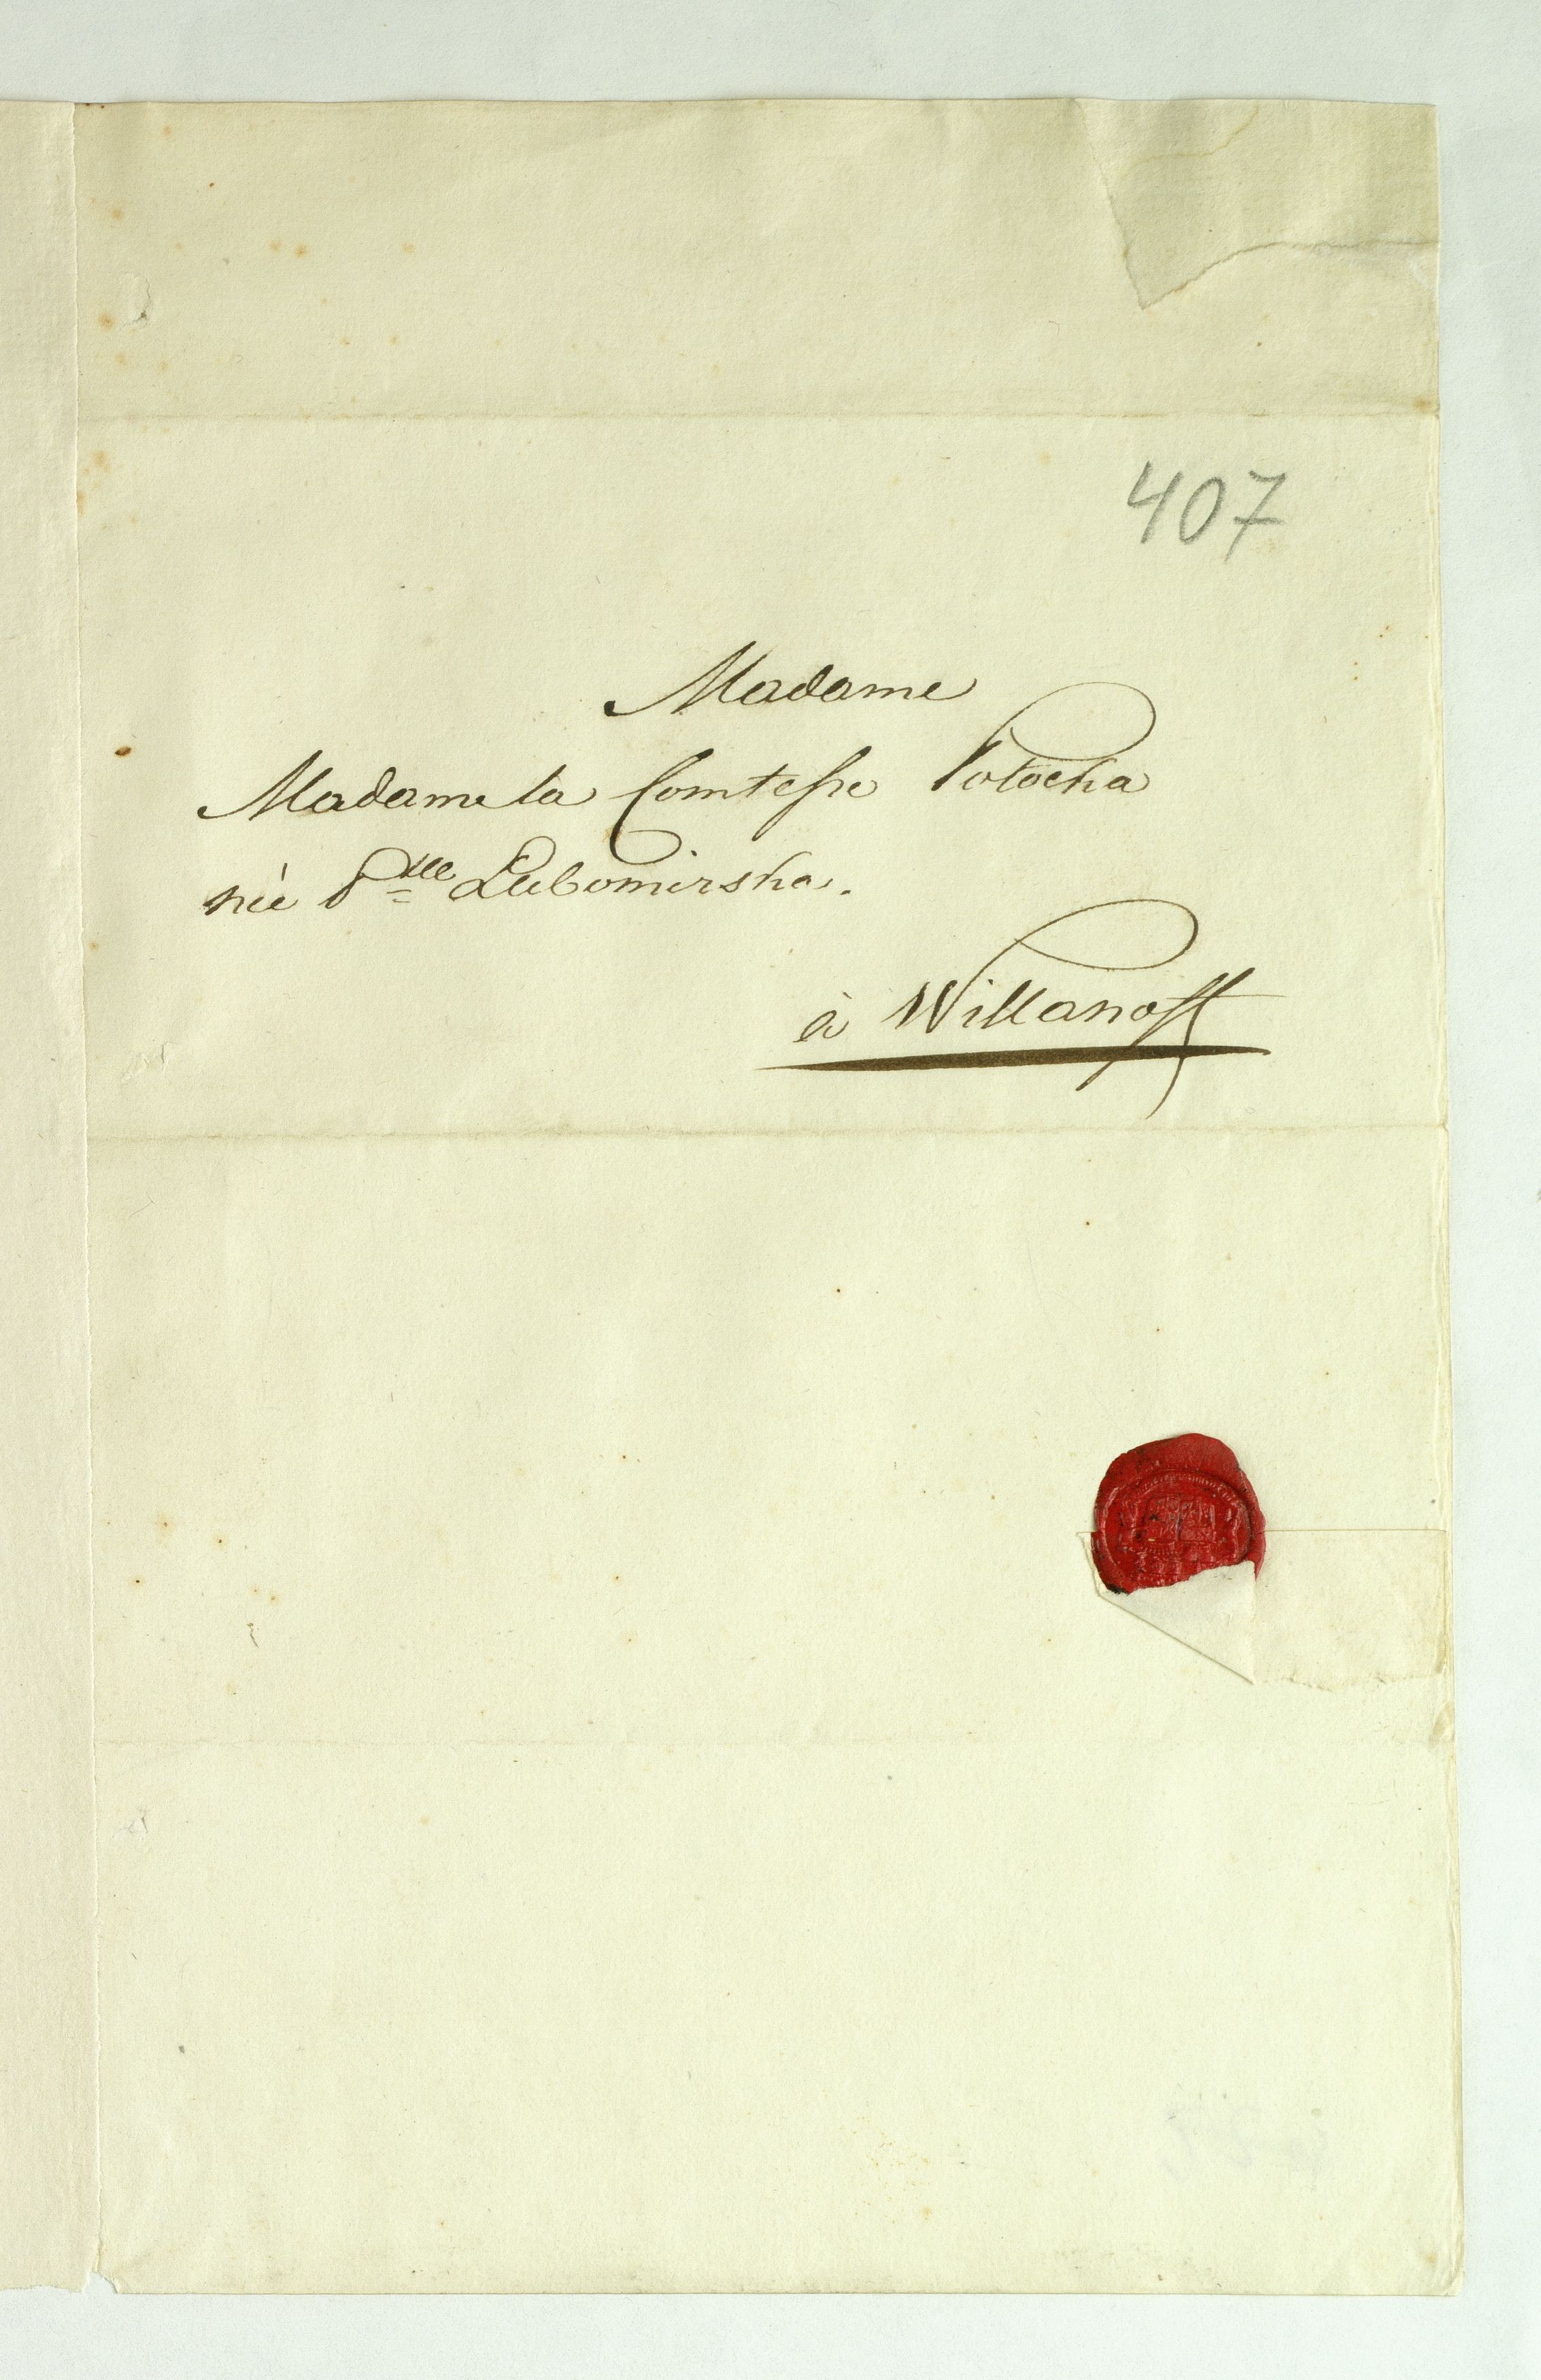 407
Madame
Madame la Comtesse Potocka
née Psse Lubomirska.
à Willanoff